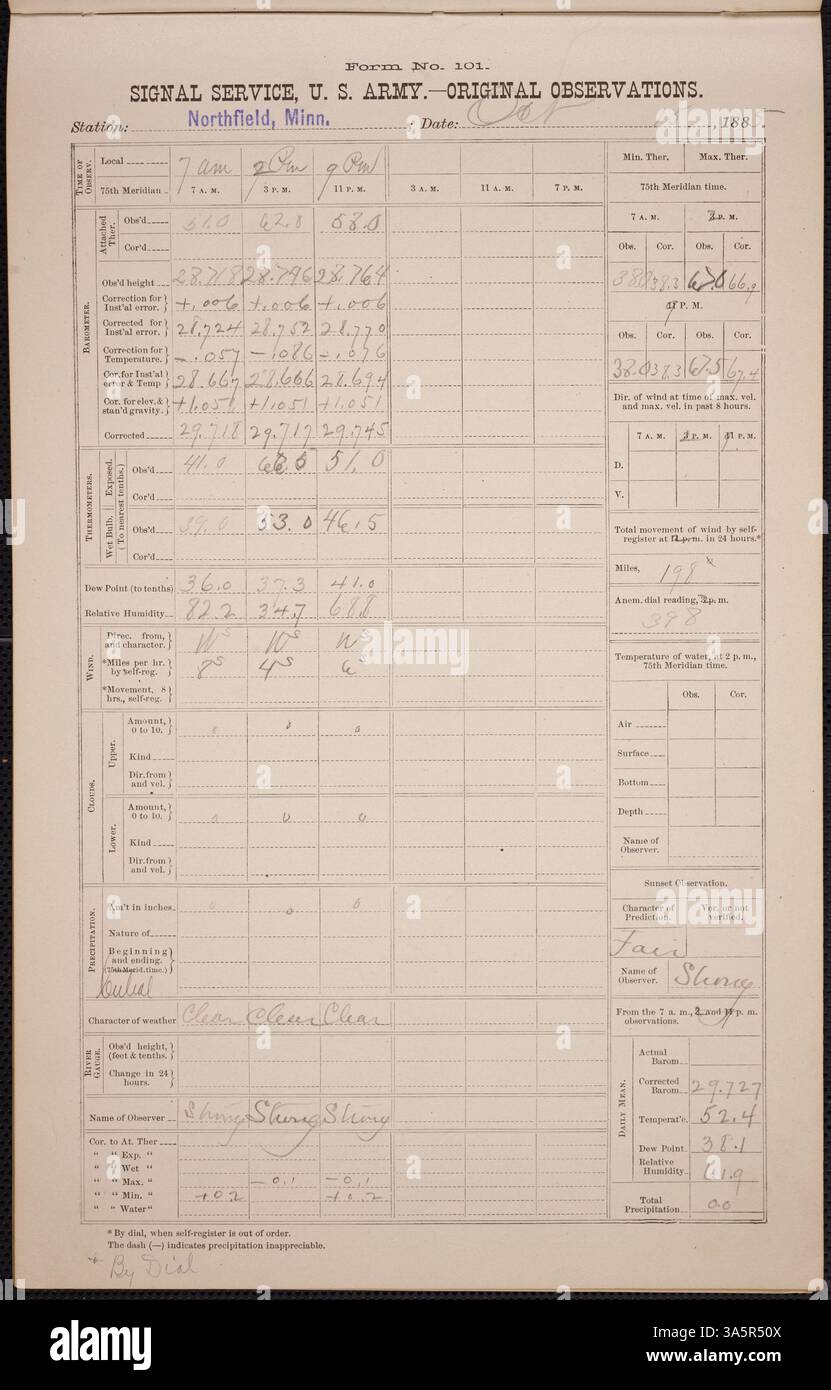 Form No. 101.
SIGNAL SERVICE, U. S. ARMY.—ORIGINAL OBSERVATIONS.
Station: Northfield, Minn. ; Date: Oct , 188
TIME OF OBSERV.
Local 7 am 2 Pm 9 Pm
75th Meridian 7 A. M. 3 P. M. 11 P. M. 3 A. M. 11 A. M. 7 P. M.
BAROMETER.
Attached Ther.
Obs'd 51.0 62.0 58.0
Cor'd
Obs'd height 28.718 28.746 28.764
Correction for Inst'al error. +.006 +.006 +.006
Corrected for Inst'al error. 28.724 28.752 28.770
Correction for Temperature. -.057 -.086 -.076
Cor. for Inst'al error & Temp 28.667 28.666 28.694
Cor. for elev. & stan'd gravity. +1.051 +1.051 +1.051
Corrected 29.718 29.717 29.745
THERMOMETERS.
Wet Bulb. Exposed.
(To nearest tenths.)
Obs'd 41.0 51.0
Cor'd
Obs'd 39.0 53.0 46.5
Cor'd
Dew Point (to tenths) 36.0 37.3 41.0
Relative Humidity 82.2 34.7 68.8
WIND.
Direc. from, and character. W S W S W S
*Miles per hr. by self-reg. 8 S 4 S 6 S
*Movement, 8 hrs., self-reg.
CLOUDS.
Upper.
Amount, 0 to 10. 0 0 0
Kind
Dir. from and vel.
Lower.
Amount, 0 to 10. 0 0 0
Kind
Dir. from and vel.
PRECIPITATION.
Am't in inches 0 0 0
Nature of
Beginning and ending. (75th Merid. time.)
Character of weather Clear Clear Clear
RIVER GAUGE.
Obs'd height, (feet & tenths.
Change in 24 hours.
Name of Observer Strong Strong Strong
Cor. to At. Ther
" " Exp. "
" " Wet "
" " Max. " -0.1 -0.1
" " Min. " +0.2 +0.2
" " Water "
* By dial, when self-register is out of order.
The dash (—) indicates precipitation inappreciable.
* By Dial
Min. Ther. Max. Ther.
75th Meridian time.
7 A. M. 3 P. M.
Obs. Cor. Obs. Cor.
38.0 38.3 67.0 66.9
11 P. M.
Obs. Cor. Obs. Cor.
38.0 38.3 67.5 67.4
Dir. of wind at time of max. vel. and max. vel. in past 8 hours.
7 A. M. 3 P. M. 11 P. M.
D.
V.
Total movement of wind by self-register at 12 p. m. in 24 hours.*
Miles, 198
Anem. dial reading, 2 p. m.
398
Temperature of water, at 2 p. m., 75th Meridian time.
Obs. Cor.
Air
Surface
Bottom
Depth
Name of Observer.
Sunset Observation.
Character of Prediction. Ver. or not verified.
Fair
Name of Observer. Strong
From the 7 a. m., 3, and 11 p. m. observations.
DAILY MEAN.
Actual Barom
Corrected Barom 29.727
Temperat'e. 52.4
Dew Point. 38.1
Relative Humidity 61.9
Total Precipitation 0.0
alamy
a
alamy
Image ID: 3A5R50X
www.alamy.com